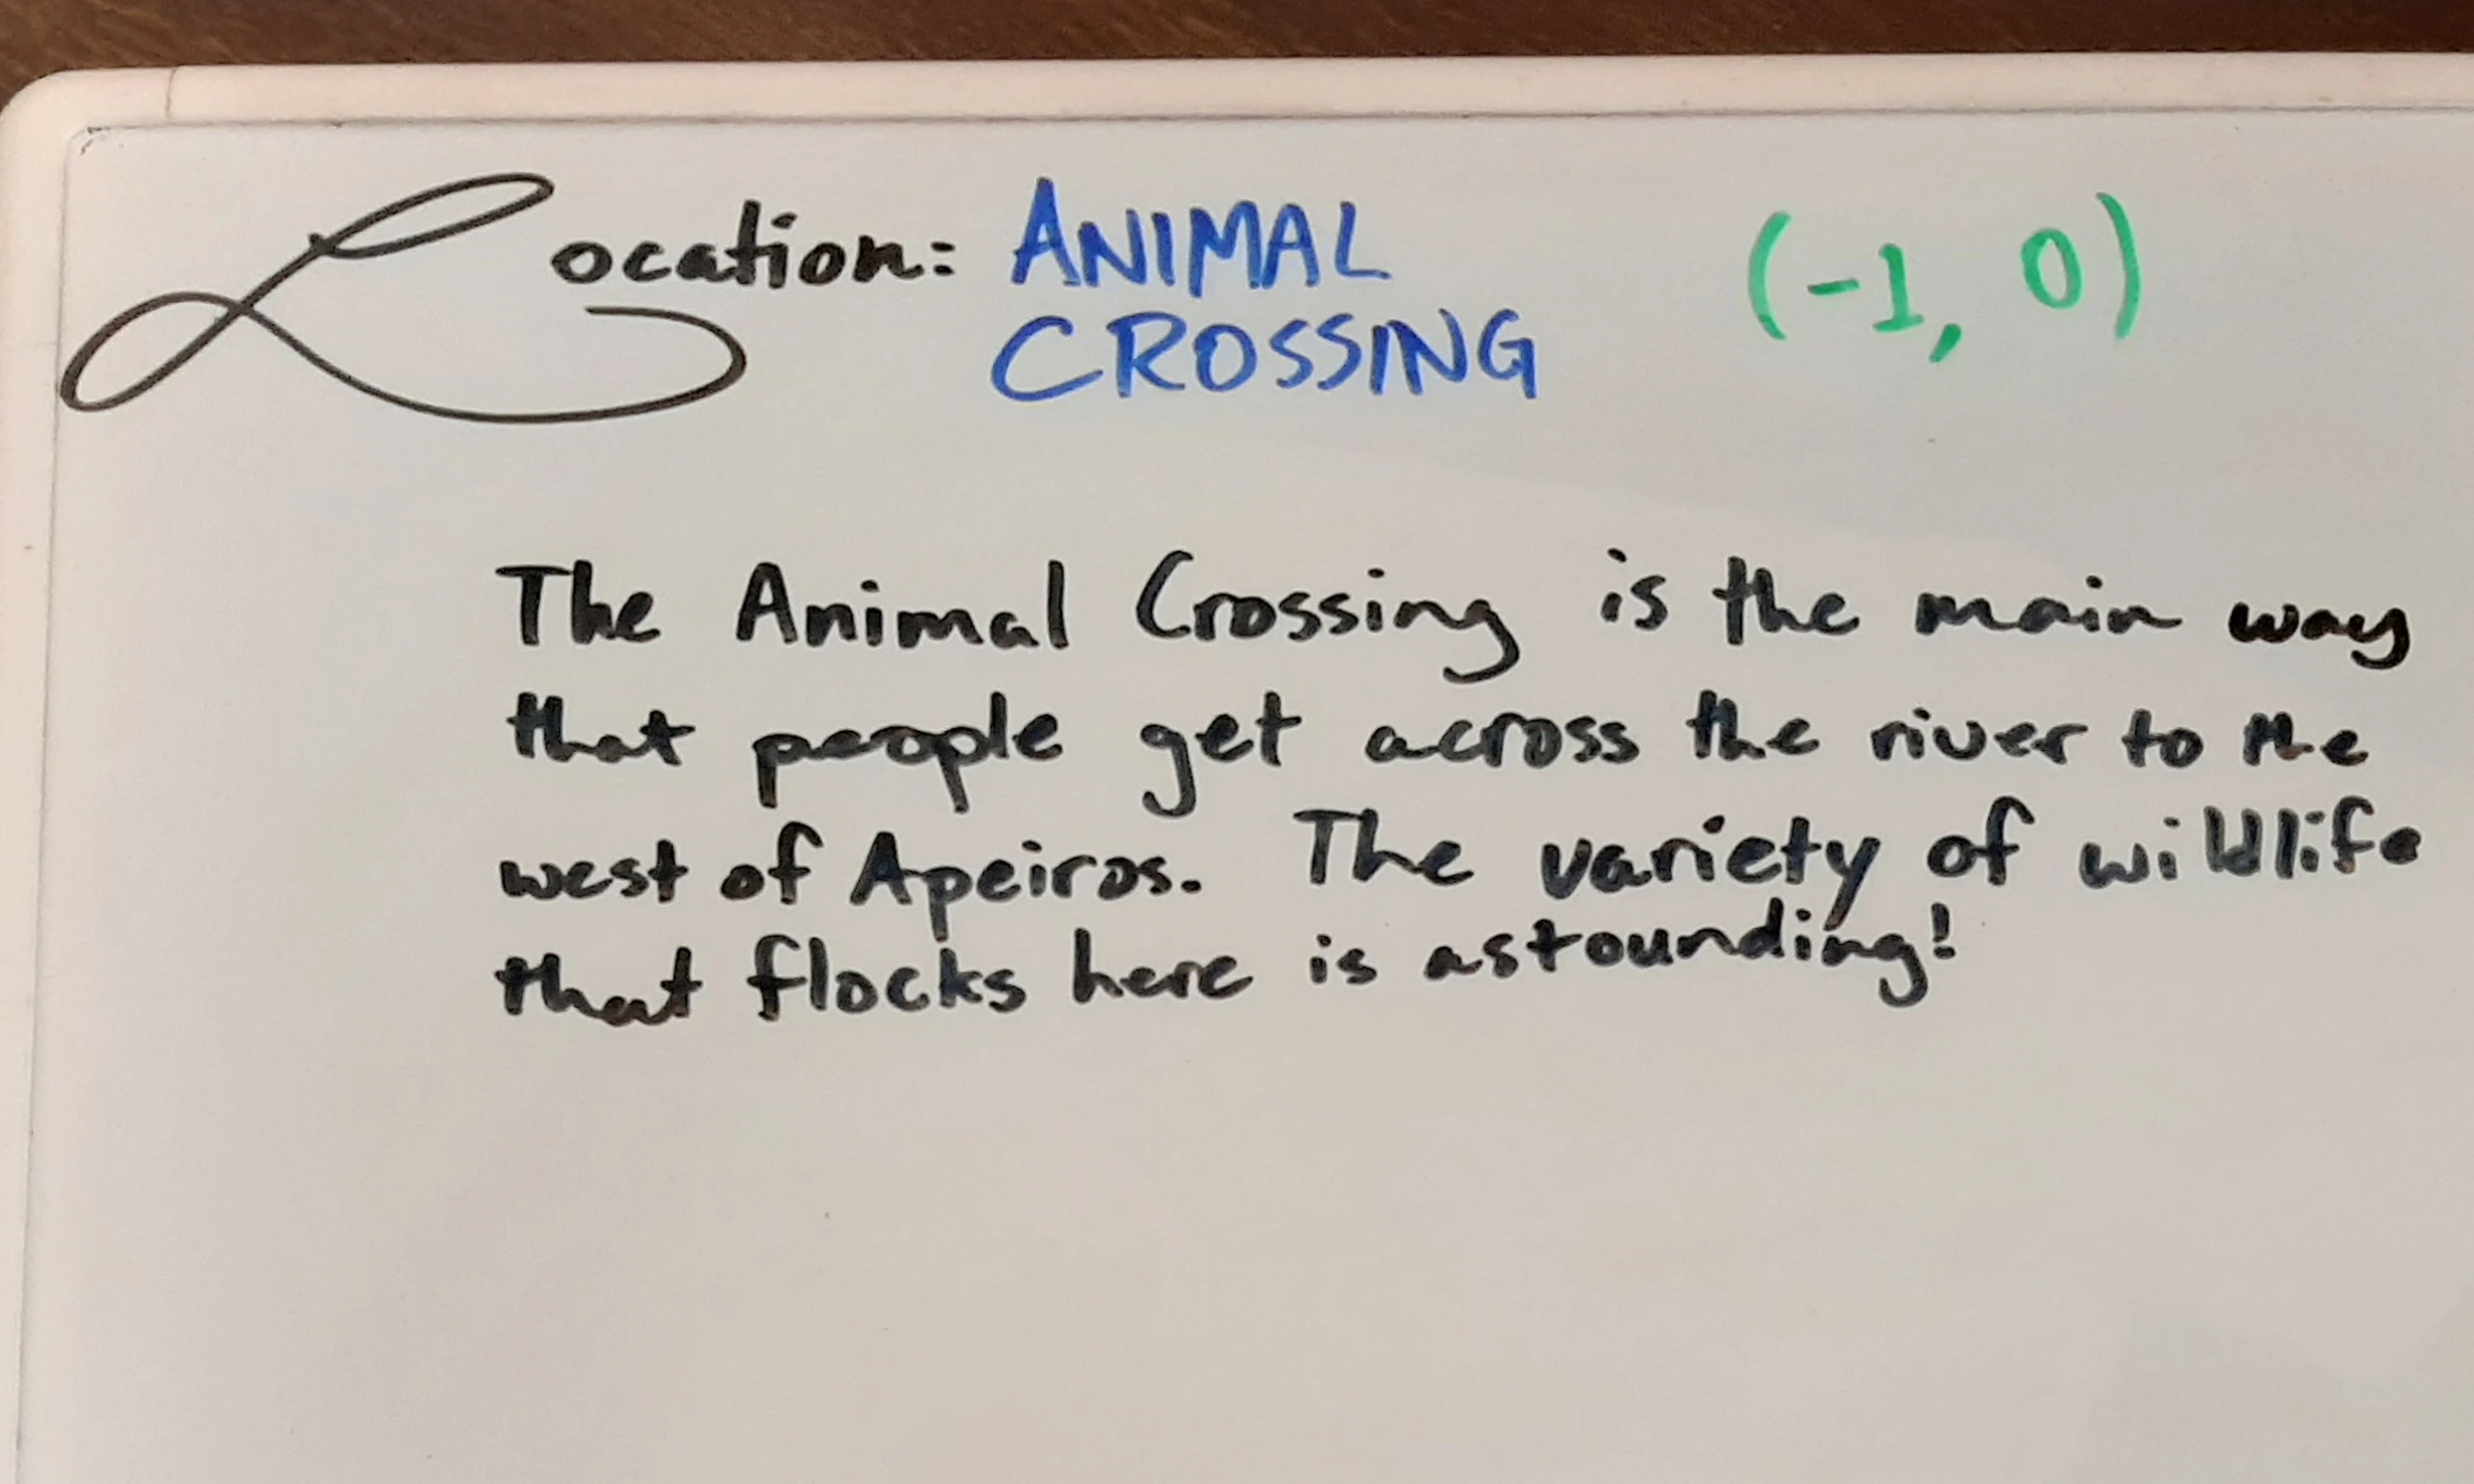 Location: ANIMAL (-1, 0)
CROSSING
The Animal Crossing is the main way
that people get across the river to the
west of Apeiros. The variety of wildlife
that flocks here is astounding!